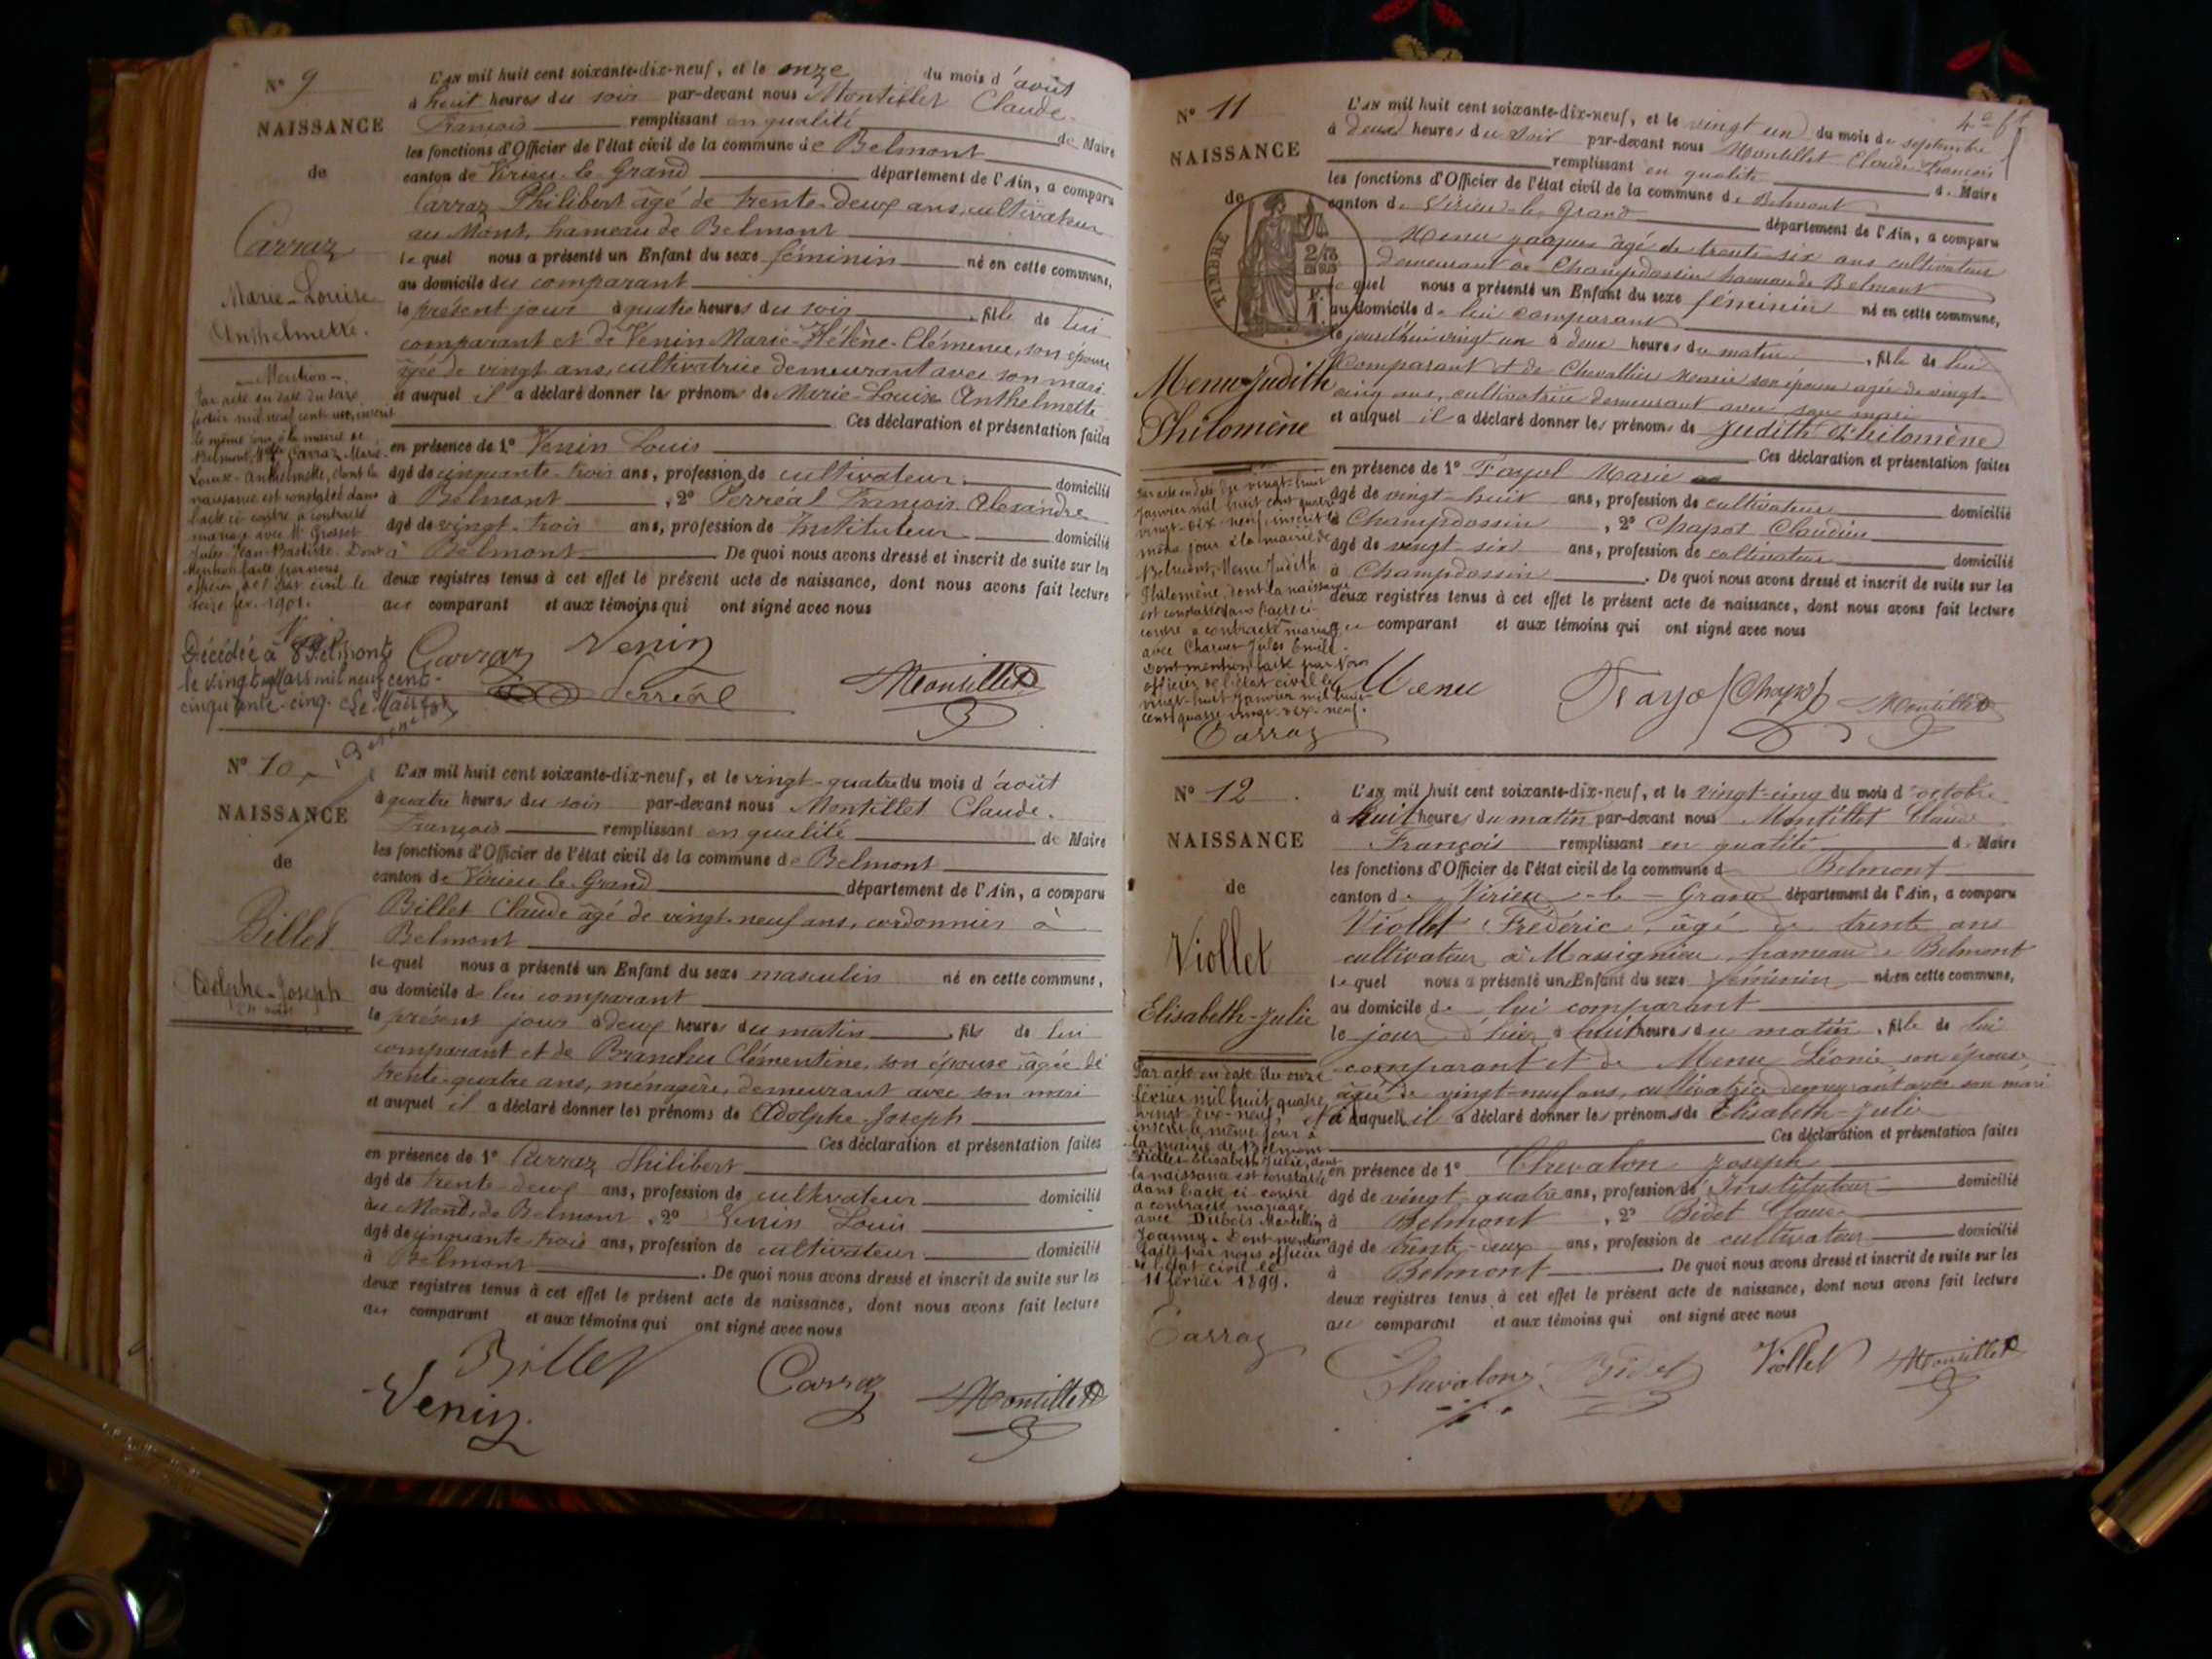 N° 9
NAISSANCE
de
Carraz
Marie-Louise
Anthelmette.
L'AN mil huit cent soixante-dix-neuf, et le onze du mois d'août
à huit heures du soir par-devant nous Montillet Claude-
François remplissant en qualité de Maire
les fonctions d'Officier de l'état civil de la commune de Belmont
canton de Virieu-le-Grand département de l'Ain, a comparu
Carraz Philibert âgé de trente-deux ans, cultivateur
au Mont, hameau de Belmont
lequel nous a présenté un Enfant du sexe féminin né en cette commune,
au domicile du comparant
le présent jour à quatre heures du soir, fille de lui
comparant et de Venin Marie-Hélène-Clémence, son épouse
âgée de vingt ans, cultivatrice demeurant avec son mari
et auquel il a déclaré donner les prénoms de Marie-Louise Anthelmette
Ces déclaration et présentation faites
en présence de 1° Venin Louis
âgé de cinquante-trois ans, profession de cultivateur domicilié
à Belmont, 2° Perréal François Alexandre
âgé de vingt-trois ans, profession de Instituteur domicilié
à Belmont. De quoi nous avons dressé et inscrit de suite sur les
deux registres tenus à cet effet le présent acte de naissance, dont nous avons fait lecture
au comparant et aux témoins qui ont signé avec nous
Carraz Venin
Perréal Montillet
Mention
Par acte en date du seize
février mil neuf cent un, inscrit
le même jour à la mairie de
Belmont, Carraz Marie-
Louise-Anthelmette, dont la
naissance est constatée dans
l'acte ci-contre a contracté
mariage avec Mr Grosset
Jules Jean-Baptiste. Dont
mention faite par nous
officier de l'état civil le
seize fév. 1901.
Décédée à Belmont
le vingt Mars mil neuf cent-
cinquante-cinq. Le Maire
N° 10
NAISSANCE
de
Billet
Adolphe-Joseph
L'AN mil huit cent soixante-dix-neuf, et le vingt-quatre du mois d'août
à quatre heures du soir par-devant nous Montillet Claude-
François remplissant en qualité de Maire
les fonctions d'Officier de l'état civil de la commune de Belmont
canton de Virieu-le-Grand département de l'Ain, a comparu
Billet Claude âgé de vingt-neuf ans, cordonnier à
Belmont
lequel nous a présenté un Enfant du sexe masculin né en cette commune,
au domicile de lui comparant
le présent jour à deux heures du matin, fils de lui
comparant et de Clémentine, son épouse, âgée de
trente-quatre ans, ménagère, demeurant avec son mari
et auquel il a déclaré donner les prénoms de Adolphe-Joseph
Ces déclaration et présentation faites
en présence de 1° Carraz Philibert
âgé de trente-deux ans, profession de cultivateur domicilié
au Mont, de Belmont, 2° Venin Louis
âgé de cinquante-trois ans, profession de cultivateur domicilié
à Belmont. De quoi nous avons dressé et inscrit de suite sur les
deux registres tenus à cet effet le présent acte de naissance, dont nous avons fait lecture
au comparant et aux témoins qui ont signé avec nous
Billet Carraz
Venin Montillet
N° 11
NAISSANCE
de
TIMBRE
Menu Judith
Philomène
L'AN mil huit cent soixante-dix-neuf, et le vingt un du mois de septembre
à deux heures du soir par-devant nous Montillet Claude-François
remplissant en qualité de Maire
les fonctions d'Officier de l'état civil de la commune de Belmont
canton de Virieu-le-Grand département de l'Ain, a comparu
Menu Jacques âgé de trente-six ans cultivateur
demeurant à Champdossin hameau de Belmont
lequel nous a présenté un Enfant du sexe féminin né en cette commune,
au domicile de lui comparant
le jourd'hui vingt un à deux heures du matin, fille de lui
comparant et de Chevallier son épouse âgée de vingt-
cinq ans, cultivatrice demeurant avec son mari
et auquel il a déclaré donner les prénoms de Judith Philomène
Ces déclaration et présentation faites
en présence de 1° Fayol Marie
âgé de vingt-huit ans, profession de cultivateur domicilié
à Champdossin, 2° Chapot Claudius
âgé de vingt-six ans, profession de cultivateur domicilié
à Champdossin. De quoi nous avons dressé et inscrit de suite sur les
deux registres tenus à cet effet le présent acte de naissance, dont nous avons fait lecture
au comparant et aux témoins qui ont signé avec nous
Menu Fayol Chapot Montillet
Par acte en date du vingt-huit
Janvier mil huit cent quatre
vingt-dix-neuf, inscrit le
même jour à la mairie de
Belmont, Menu Judith
Philomène, dont la naissance
est constatée dans l'acte ci-
contre a contracté mariage
avec Charvet Jules Emile.
Dont mention faite par nous
officier de l'état civil le
vingt-huit Janvier mil huit
cent quatre vingt-dix-neuf.
Carraz
N° 12
NAISSANCE
de
Viollet
Elisabeth-Julie
L'AN mil huit cent soixante-dix-neuf, et le vingt-cinq du mois d'octobre
à huit heures du matin par-devant nous Montillet Claude
François remplissant en qualité de Maire
les fonctions d'Officier de l'état civil de la commune de Belmont
canton de Virieu-le-Grand département de l'Ain, a comparu
Viollet Frédéric, âgé de trente ans
cultivateur à Massignieu, hameau de Belmont
lequel nous a présenté un Enfant du sexe féminin né en cette commune,
au domicile de lui comparant
le jour d'hier à huit heures du matin, fille de lui
comparant et de Menu Léonie, son épouse
âgée de vingt-neuf ans, cultivatrice demeurant avec son mari
et auquel il a déclaré donner les prénoms de Elisabeth-Julie
Ces déclaration et présentation faites
en présence de 1° Chevalon Joseph
âgé de vingt-quatre ans, profession de Instituteur domicilié
à Belmont, 2° Bidet Claude
âgé de trente-deux ans, profession de cultivateur domicilié
à Belmont. De quoi nous avons dressé et inscrit de suite sur les
deux registres tenus à cet effet le présent acte de naissance, dont nous avons fait lecture
au comparant et aux témoins qui ont signé avec nous
Chevalon Bidet Viollet Montillet
Par acte en date du onze
février mil huit quatre
vingt-dix-neuf,
inscrit le même jour à
la mairie de Belmont
Viollet Elisabeth Julie, dont
la naissance est constatée
dans l'acte ci-contre
a contracté mariage
avec Dubois Marcellin
Joanny. Dont mention
faite par nous officier
de l'état civil le
11 février 1899.
Carraz